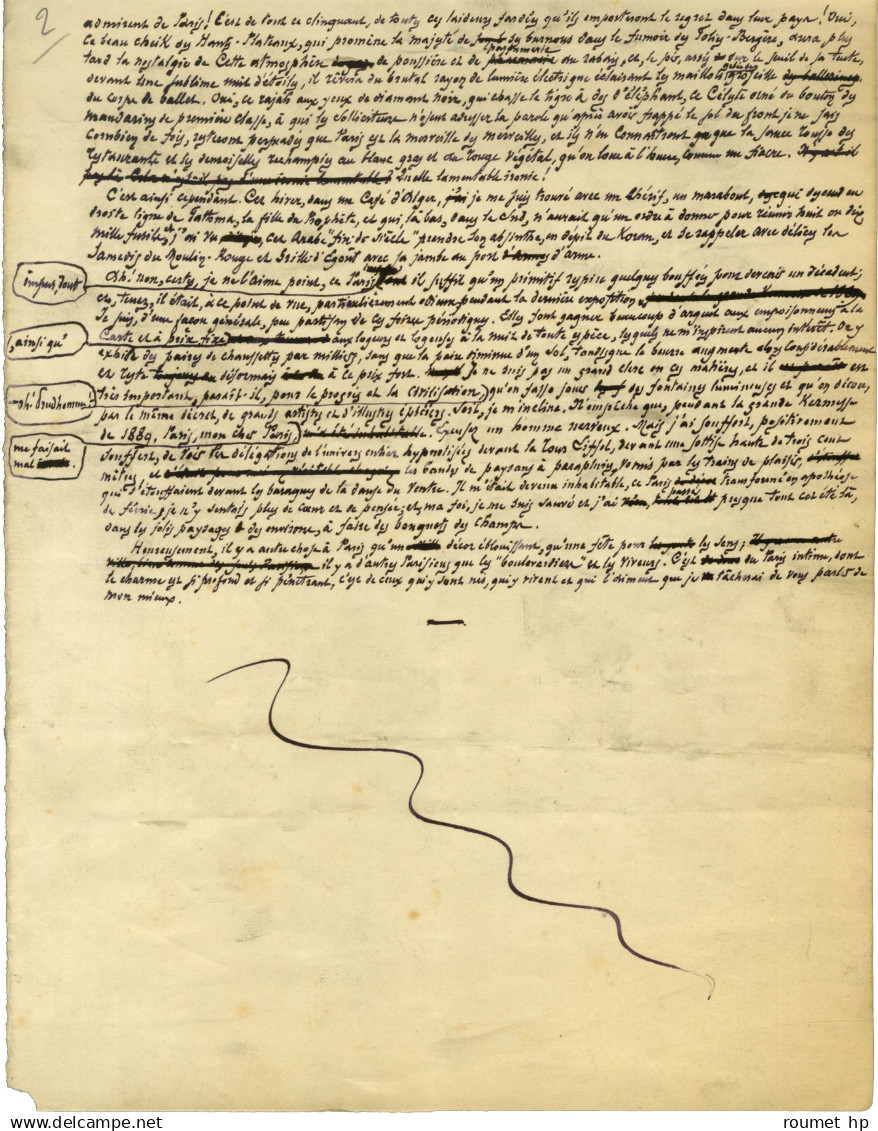 2
admirent de Paris ! C'est de tout ce clinquant, de toutes ces laideurs fardées qu'ils emporteront le regret dans leur pays ! Oui,
ce beau cheik des Hauts-Plateaux, qui promène la majesté de ses burnous dans le fumoir des Folies-Bergère, aura plus
tard la nostalgie de cette atmosphère de poussière et de parfumerie au rabais, et, le soir, assis sur le seuil de sa tente,
devant une sublime nuit d'étoiles, il rêvera du brutal rayon de lumière électrique éclairant les maillots groseille
du corps de ballet. Oui, ce rajah aux yeux de diamant noir, qui chasse le tigre à dos d'éléphant, ce Céleste orné du bouton des
mandarins de première classe, à qui les solliciteurs n'osent adresser la parole qu'après avoir frappé le sol du front je ne sais
combien de fois, resteront persuadés que Paris est la merveille des merveilles, et ils n'en connaîtront que la sauce rousse des
restaurants et les demoiselles rechampies au blanc gras et au rouge végétal, qu'on loue à l'heure, comme un fiacre.
Quelle lamentable ironie !
C'est ainsi cependant. Cet hiver, dans un Café d'Alger, je me suis trouvé avec un chérif, un marabout, qui descend en
droite ligne de Fathma, la fille du Prophète, et qui, là-bas, dans le Sud, n'aurait qu'un ordre à donner pour réunir huit ou dix
mille fusils, et j'ai vu cet Arabe "fin de siècle" prendre son absinthe, en dépit du Koran, et se rappeler avec délices les
Samedis du Moulin-Rouge et Grille-d'Égout avec sa jambe au port d'arme.
impur, dont
Oh ! non, certes, je ne l'aime point, ce Paris il suffit qu'un primitif respire quelques bouffées pour devenir un décadent ;
et, tenez, il était, à ce point de vue, particulièrement odieux pendant la dernière exposition
Je suis, d'une façon générale, peu partisan de ces foires périodiques. Elles font gagner beaucoup d'argent aux empoisonneurs à la
, ainsi qu'
Carte et à prix fixe aux logeurs et logeuses à la nuit de toute espèce, lesquels ne m'inspirent aucun intérêt. On y
exhibe des paires de chaussettes par milliers, sans que la paire diminue d'un sol, tandis que le beurre augmente considérablement
et reste désormais à ce prix fort. Je ne suis pas un grand clerc en ces matières, et il est
– oh ! Prudhomme ! –
très important, paraît-il, pour le progrès et la civilisation qu'on fasse jouer des fontaines lumineuses et qu'on décore,
par le même décret, de grands artistes et d'illustres épiciers. Soit, je m'incline. N'empêche que, pendant la grande Kermesse
me faisait
mal
de 1889, Paris, mon cher Paris Excusez un homme nerveux. Mais j'ai souffert, positivement
souffert, de voir les délégations de l'univers entier hypnotisées devant la Tour Eiffel, devant une sottise haute de trois cent
mètres et les bandes de paysans à parapluies, vomis par les trains de plaisir,
qui s'étouffaient devant les baraques de la danse du ventre. Il m'était devenu inhabitable, ce Paris transformé en apothéose
de féerie ; je n'y sentais plus de cœur et de pensée ; et, ma foi, je me suis sauvé et j'ai passé presque tout cet été-là,
dans les jolis paysages des environs, à faire des bouquets des champs.
Heureusement, il y a autre chose à Paris qu'un décor éblouissant, qu'une fête pour les sens ;
il y a d'autres Parisiens que les "boulevardiers" et les viveurs. C'est du Paris intime, dont
le charme est si profond et si pénétrant, c'est de ceux qui y sont nés, qui y vivent et qui l'aiment que je tâcherai de vous parler de
mon mieux.
roumet hp